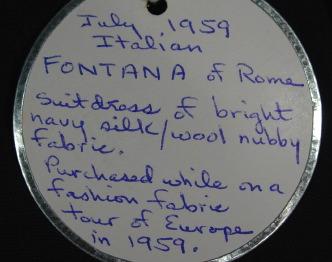 July 1959
Italian
FONTANA of Rome
Suitdress of bright
navy silk/wool nubby
fabric.
Purchased while on a
fashion fabric
tour of Europe
in 1959.